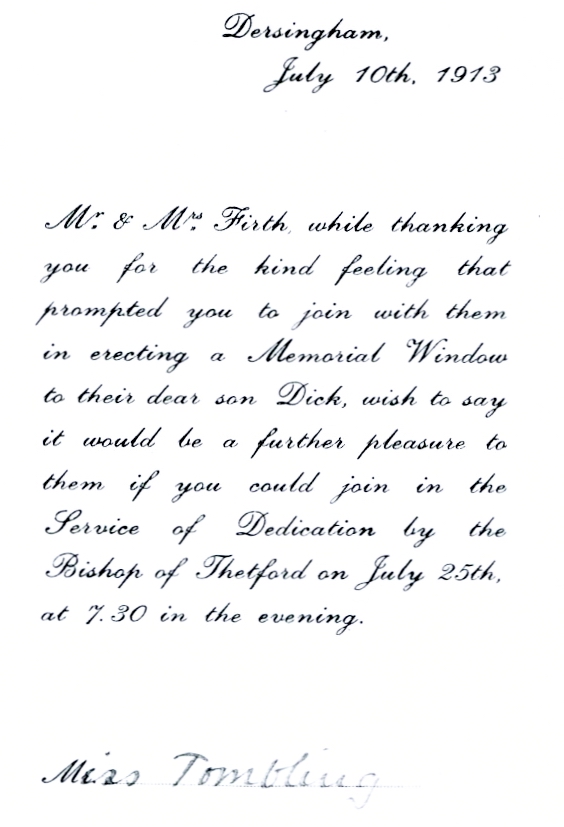 Dersingham,
July 10th. 1913
Mr. & Mrs. Firth, while thanking
you for the kind feeling that
prompted you to join with them
in erecting a Memorial Window
to their dear son Dick, wish to say
it would be a further pleasure to
them if you could join in the
Service of Dedication by the
Bishop of Thetford on July 25th,
at 7.30 in the evening.
Miss Tombling